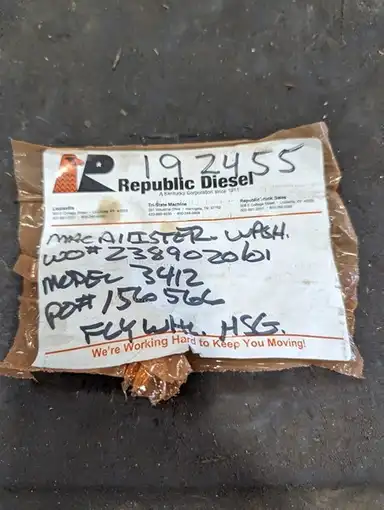 192455
Republic Diesel
A Kentucky Corporation since 1911
Louisville
Tri-State Machine
MACALLISTER WASH.
WO# 238902061
MODEL 3412
PO# 156566
FLYWHL. HSG.
We're Working Hard to Keep You Moving!